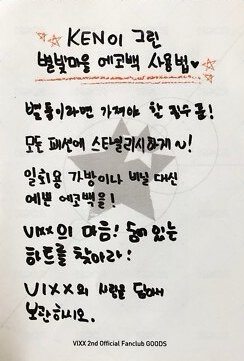 KEN이 그린
별빛마을 에코백 사용법♥
별통이라면 가져야 할 필수 품!
모든 패션에 스타일리시하게 ~!
일회용 가방이나 비닐 대신
예쁜 에코백을!
VIXX의 마음! 숨어 있는
하트를 찾아라!
VIXX의 사랑을 담아서
보관하시오.
VIXX 2nd Official Fanclub GOODS